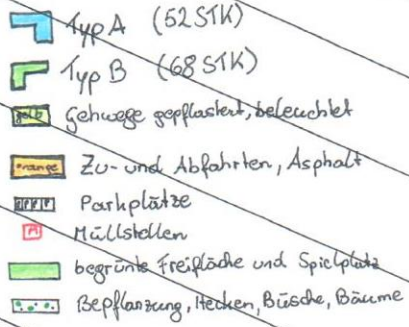 Typ A (52 STK)
Typ B (68 STK)
gelb Gehwege gepflastert, beleuchtet
orange Zu- und Abfahrten, Asphalt
PPPP Parkplätze
M Müllstellen
begrünte Freifläche und Spielplatz
Bepflanzung, Hecken, Büsche, Bäume